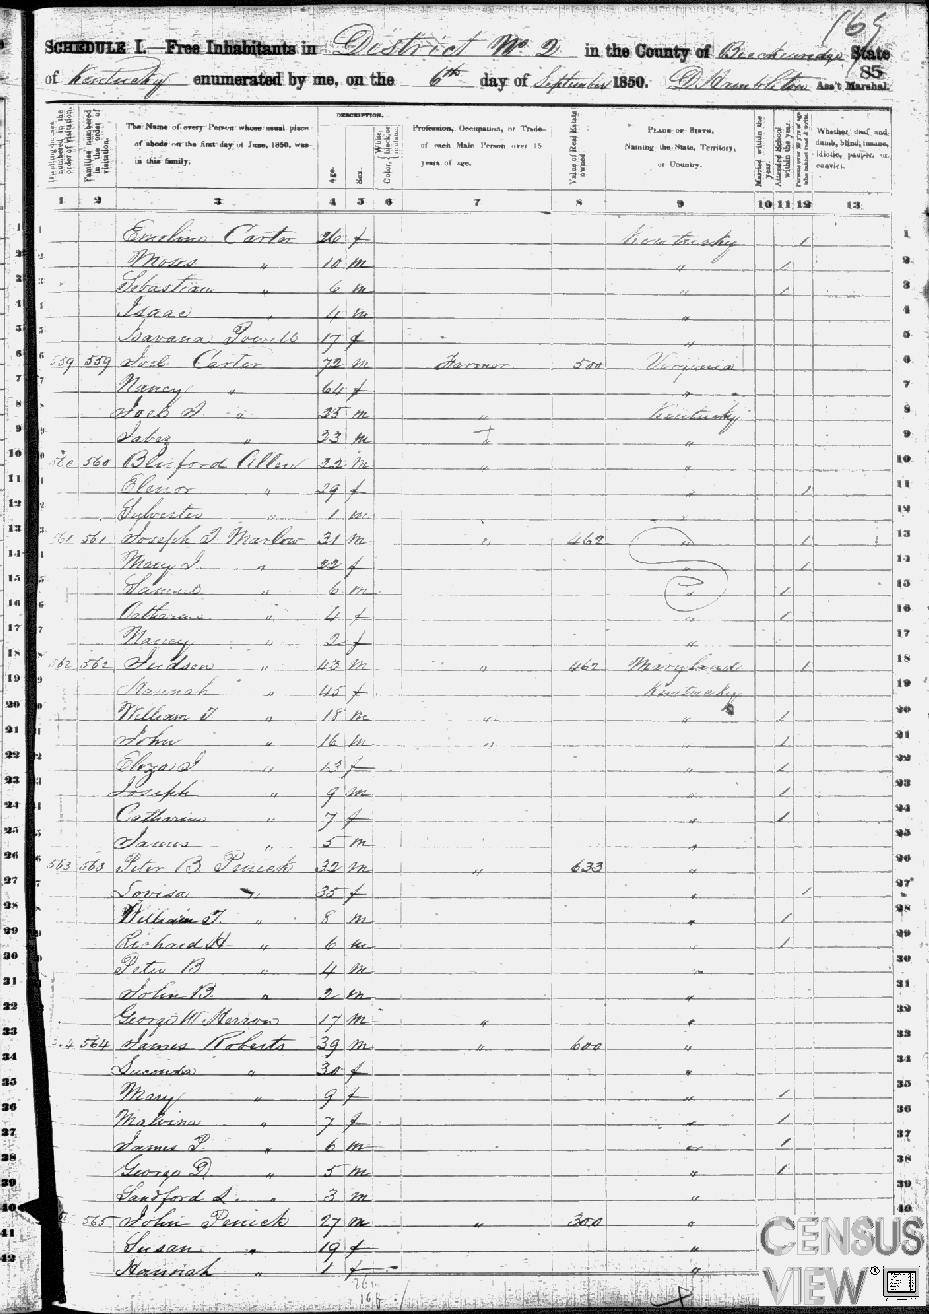 165
SCHEDULE I.—Free Inhabitants in District No 2 in the County of Breckenridge State
of Kentucky enumerated by me, on the 6th day of September 1850. Ass't Marshal.
85
DESCRIPTION.
Dwelling-houses numbered in the order of visitation.
Families numbered in the order of visitation.
The Name of every Person whose usual place of abode on the first day of June, 1850, was in this family.
Age.
Sex.
Color, White, black, or mulatto.
Profession, Occupation, or Trade of each Male Person over 15 years of age.
Value of Real Estate owned.
PLACE OF BIRTH, Naming the State, Territory, or Country.
Married within the year.
Attended School within the year.
Persons over 20 y'rs of age who cannot read & write.
Whether deaf and dumb, blind, insane, idiotic, pauper, or convict.
1 2 3 4 5 6 7 8 9 10 11 12 13
1 Emeline Carter 26 f Kentucky 1 1
2 Moses " 10 m " 1 2
3 Sebastian " 6 m " 1 3
4 Isaac " 4 m " 4
5 17 f " 5
6 559 559 Joel Carter 72 m Farmer 500 Virginia 6
7 Nancy " 64 f " 7
8 " 25 m " Kentucky 8
9 Jabez " 23 m " " 9
10 560 560 Bluford Allen 22 m " " 10
11 Elenor " 29 f " 1 11
12 Sylvester " 1 m " 12
13 561 561 Joseph T Marlow 31 m " 462 " 1 13
14 Mary J " 22 f " 1 14
15 " 6 m " 1 15
16 Catharine " 4 f " 1 16
17 Nancy " 2 f " 17
18 562 562 Judson " 43 m " 462 Maryland 1 18
19 Hannah " 45 f Kentucky 19
20 William T " 18 m " " 1 20
21 John " 16 m " " 1 21
22 Eliza J " 13 f " 1 22
23 Joseph " 9 m " 1 23
24 Catharine " 7 f " 1 24
25 James " 5 m " 25
26 563 563 Peter B Penick 32 m " 633 " 26
27 Lovisa " 35 f " 1 27
28 William T. " 8 m " 1 28
29 Richard H " 6 m " 1 29
30 Peter B " 4 m " 30
31 John B. " 2 m " 31
32 George W 17 m " " 32
33 564 James Roberts 39 m " 600 " 33
34 " 30 f " 34
35 Mary " 9 f " 1 35
36 Malvina " 7 f " 1 36
37 James P. " 6 m " 1 37
38 George D " 5 m " 1 38
39 Sandford L. " 3 m " 39
40 565 John Penick 27 m " 300 " 40
41 Susan " 19 f "
42 Hannah " 1 f "
CENSUS
VIEW